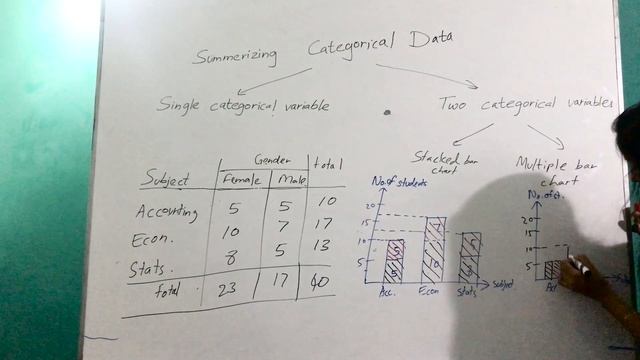 Summerizing Categorical Data
Single categorical variable
Two categorical variables
Gender
Subject Female Male total
Accounting 5 5 10
Econ. 10 7 17
Stats. 8 5 13
total 23 17 40
Stacked bar
chart
No. of students
20
15
10
5
Acc. Econ Stats Subject
Multiple bar
chart
20
15
10
5